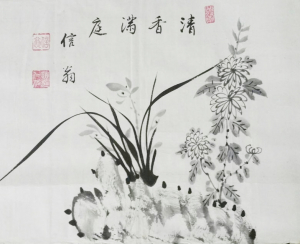 清香满庭
信翁